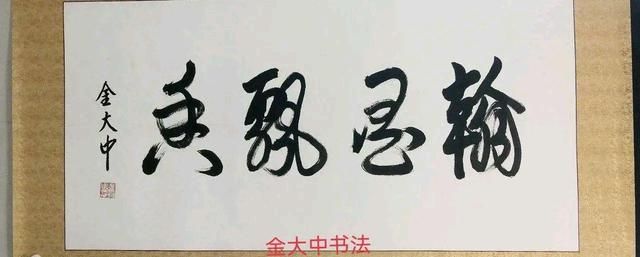 翰墨飘香
金大中
金大中书法